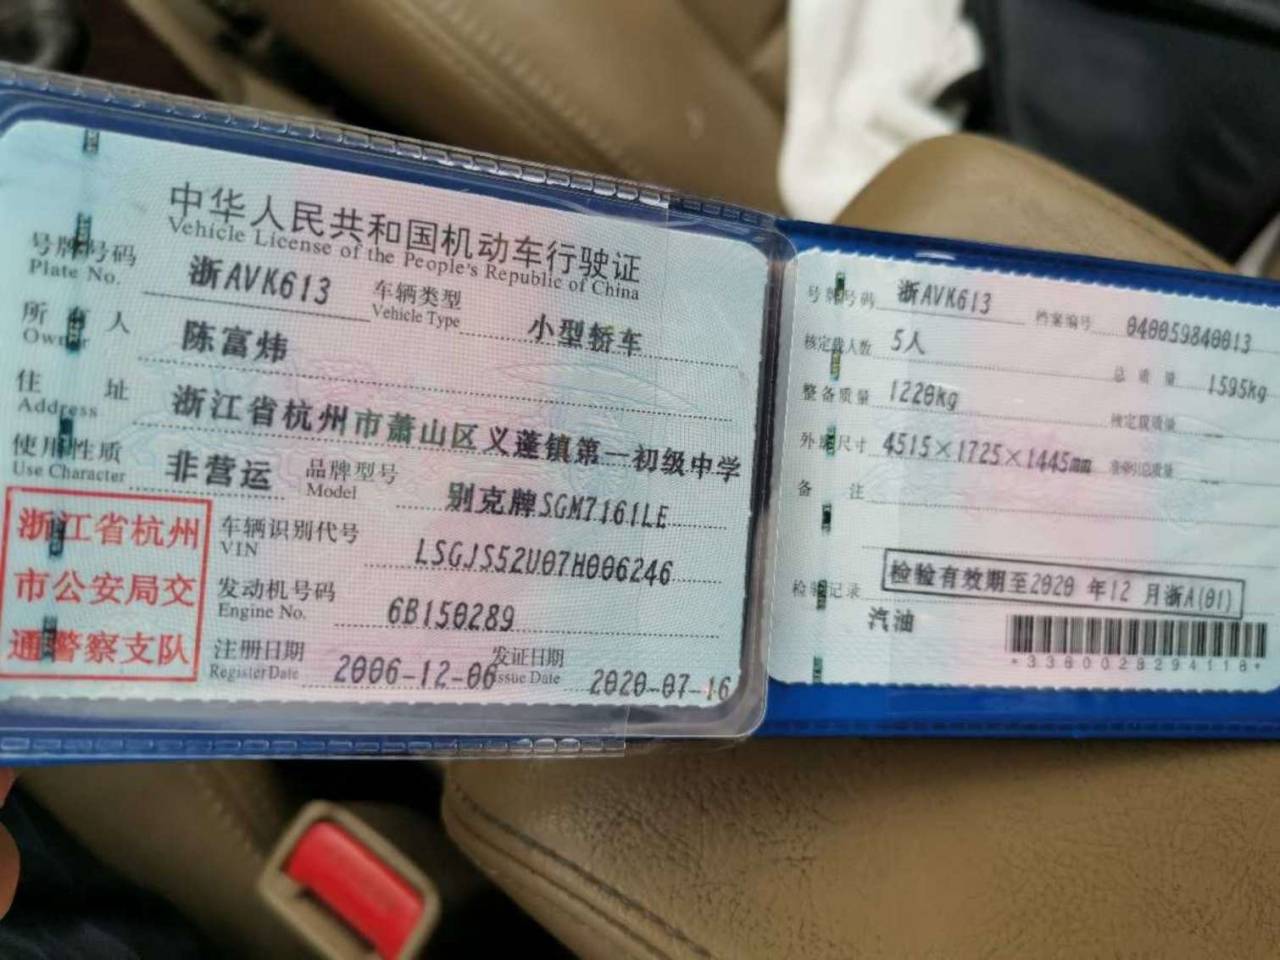 中华人民共和国机动车行驶证
Vehicle License of the People's Republic of China
号牌号码 浙AVK613 车辆类型 小型轿车
Plate No. Vehicle Type
所有人 陈富炜
Owner
住址 浙江省杭州市萧山区义蓬镇第一初级中学
Address
使用性质 非营运 品牌型号 别克牌SGM7161LE
Use Character Model
浙江省杭州
市公安局交
通警察支队
车辆识别代号 LSGJS52U07H006246
VIN
发动机号码 6B150289
Engine No.
注册日期 2006-12-06 发证日期 2020-07-16
Register Date Issue Date
号牌号码 浙AVK613 档案编号 040059840013
核定载人数 5人 总质量 1595kg
整备质量 1220kg 核定载质量
外廓尺寸 4515×1725×1445mm 准牵引总质量
备注
检验记录 检验有效期至2020年12月浙A(01)
汽油
*3380028294118*